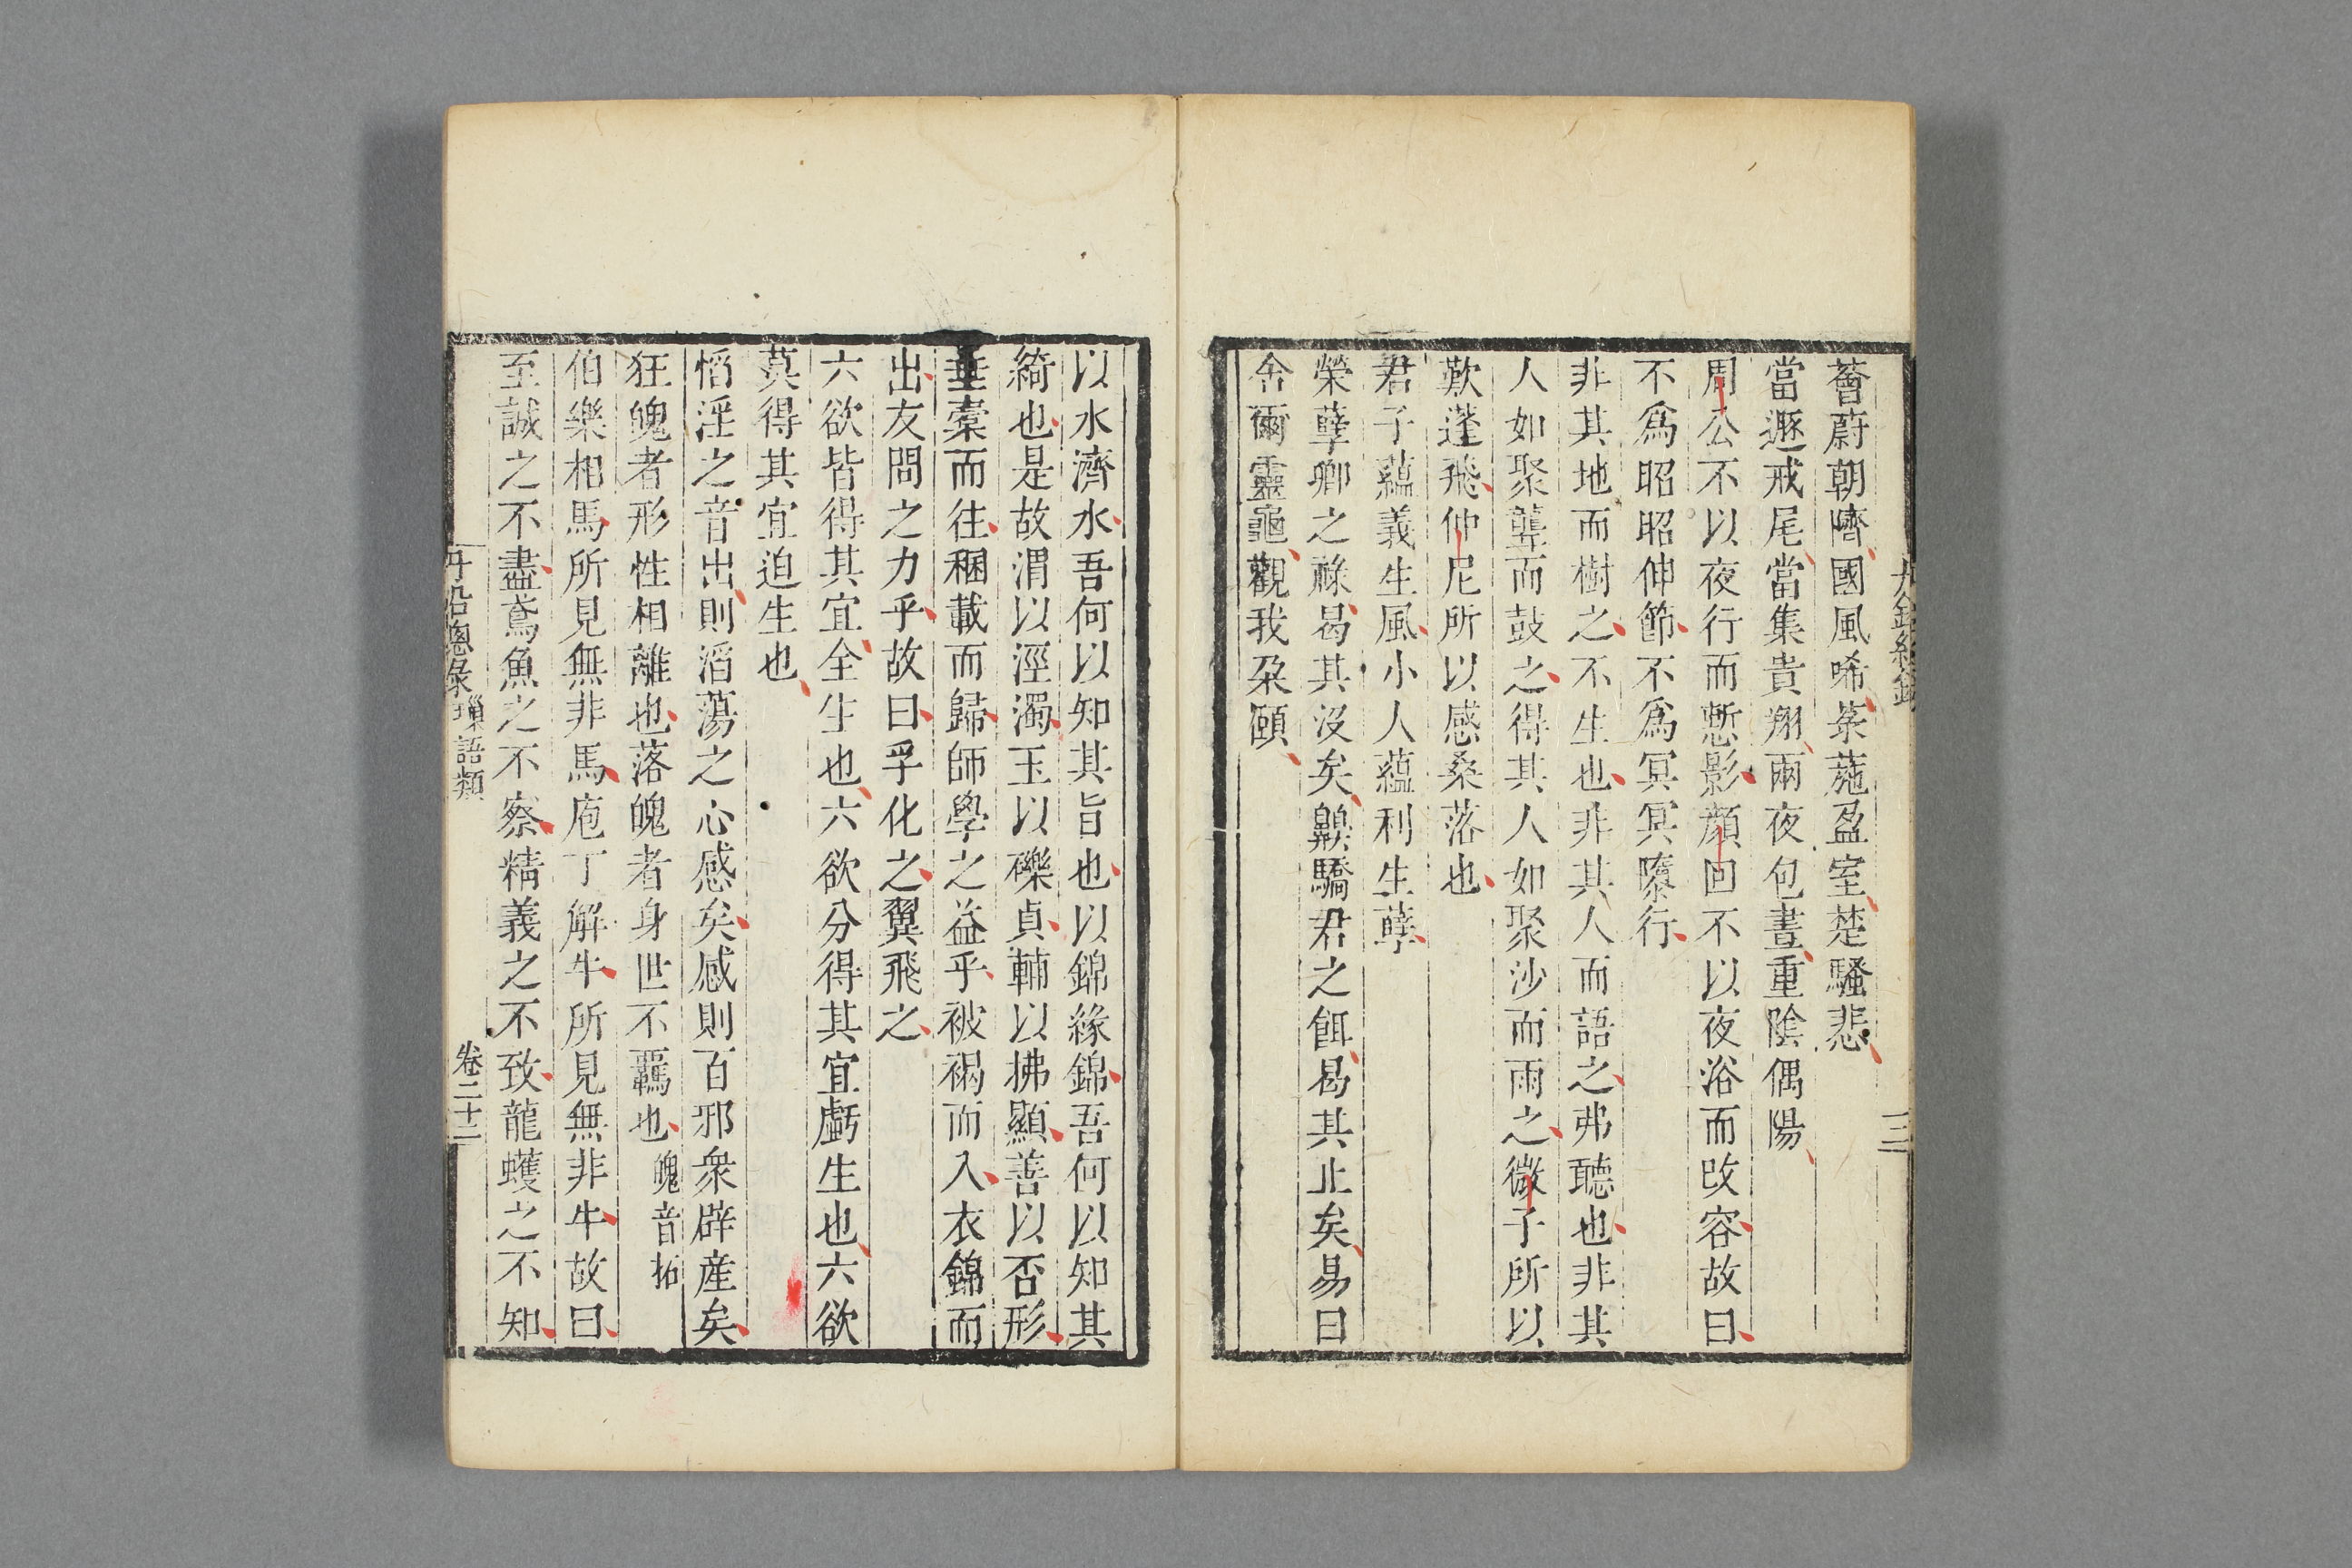 薈蔚朝隮國風唏菉葹盈室楚騷悲
當遯戒尾當集貴翔雨夜包晝重陰偶陽
周公不以夜行而慙影顏回不以夜浴而改容故曰
不爲昭昭伸節不爲冥冥隳行
非其地而樹之不生也非其人而語之弗聽也非其
人如聚聾而鼓之得其人如聚沙而雨之微子所以
歎蓬飛仲尼所以感桑落也
君子蘊義生風小人蘊利生孽
榮孽卿之祿曷其沒矣鸒驕君之餌曷其止矣易曰
舍爾靈龜觀我朶頤
三
以水濟水吾何以知其旨也以錦緣錦吾何以知其
綺也是故渭以涇濁玉以礫貞輔以拂顯善以否形
垂橐而往稛載而歸師學之益乎被褐而入衣錦而
出友問之力乎故曰孚化之翼飛之
六欲皆得其宜全生也六欲分得其宜虧生也六欲
莫得其宜迫生也
慆淫之音出則滔蕩之心感矣感則百邪衆辟産矣
狂魄者形性相離也落魄者身世不羈也魄音拓
伯樂相馬所見無非馬庖丁解牛所見無非牛故曰
至誠之不盡鳶魚之不察精義之不致龍蠖之不知
丹鉛總錄 璅語類 卷二十二